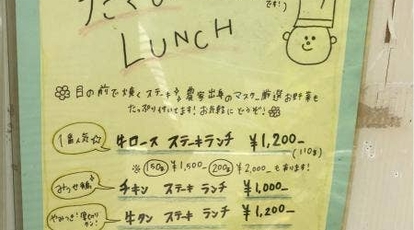 です!)
LUNCH
目の前で焼くステーキ♪ 農家出身のマスター厳選お野菜も
たっぷり付いてます! お気軽にどうぞ!
1番人気☆ 牛ロース ステーキランチ ¥1,200-
(110g)
※ 150g ¥1,500- 200g ¥2,000- も有ります!
みつせ鶏 チキン ステーキ ランチ ¥1,000-
やみつき!厚切りタン! 牛タン ステーキ ランチ ¥1,200-